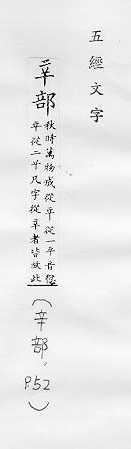 五經文字
辛部
秋時萬物成從辛從一辛音愆
辛從二凡字從辛者皆放此
(辛部,
P.52)